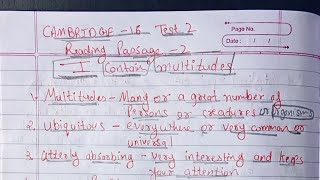 CAMBRIDGE - 16 Test 2
Page No.
Date: / /
Reading Passage - 2
I Contain multitudes
1. Multitudes - Many or a great number of
persons or creatures or organisms
2. Ubiquitous - everywhere or very common or
universal
3. Utterly absorbing - very interesting and keeps
your attention